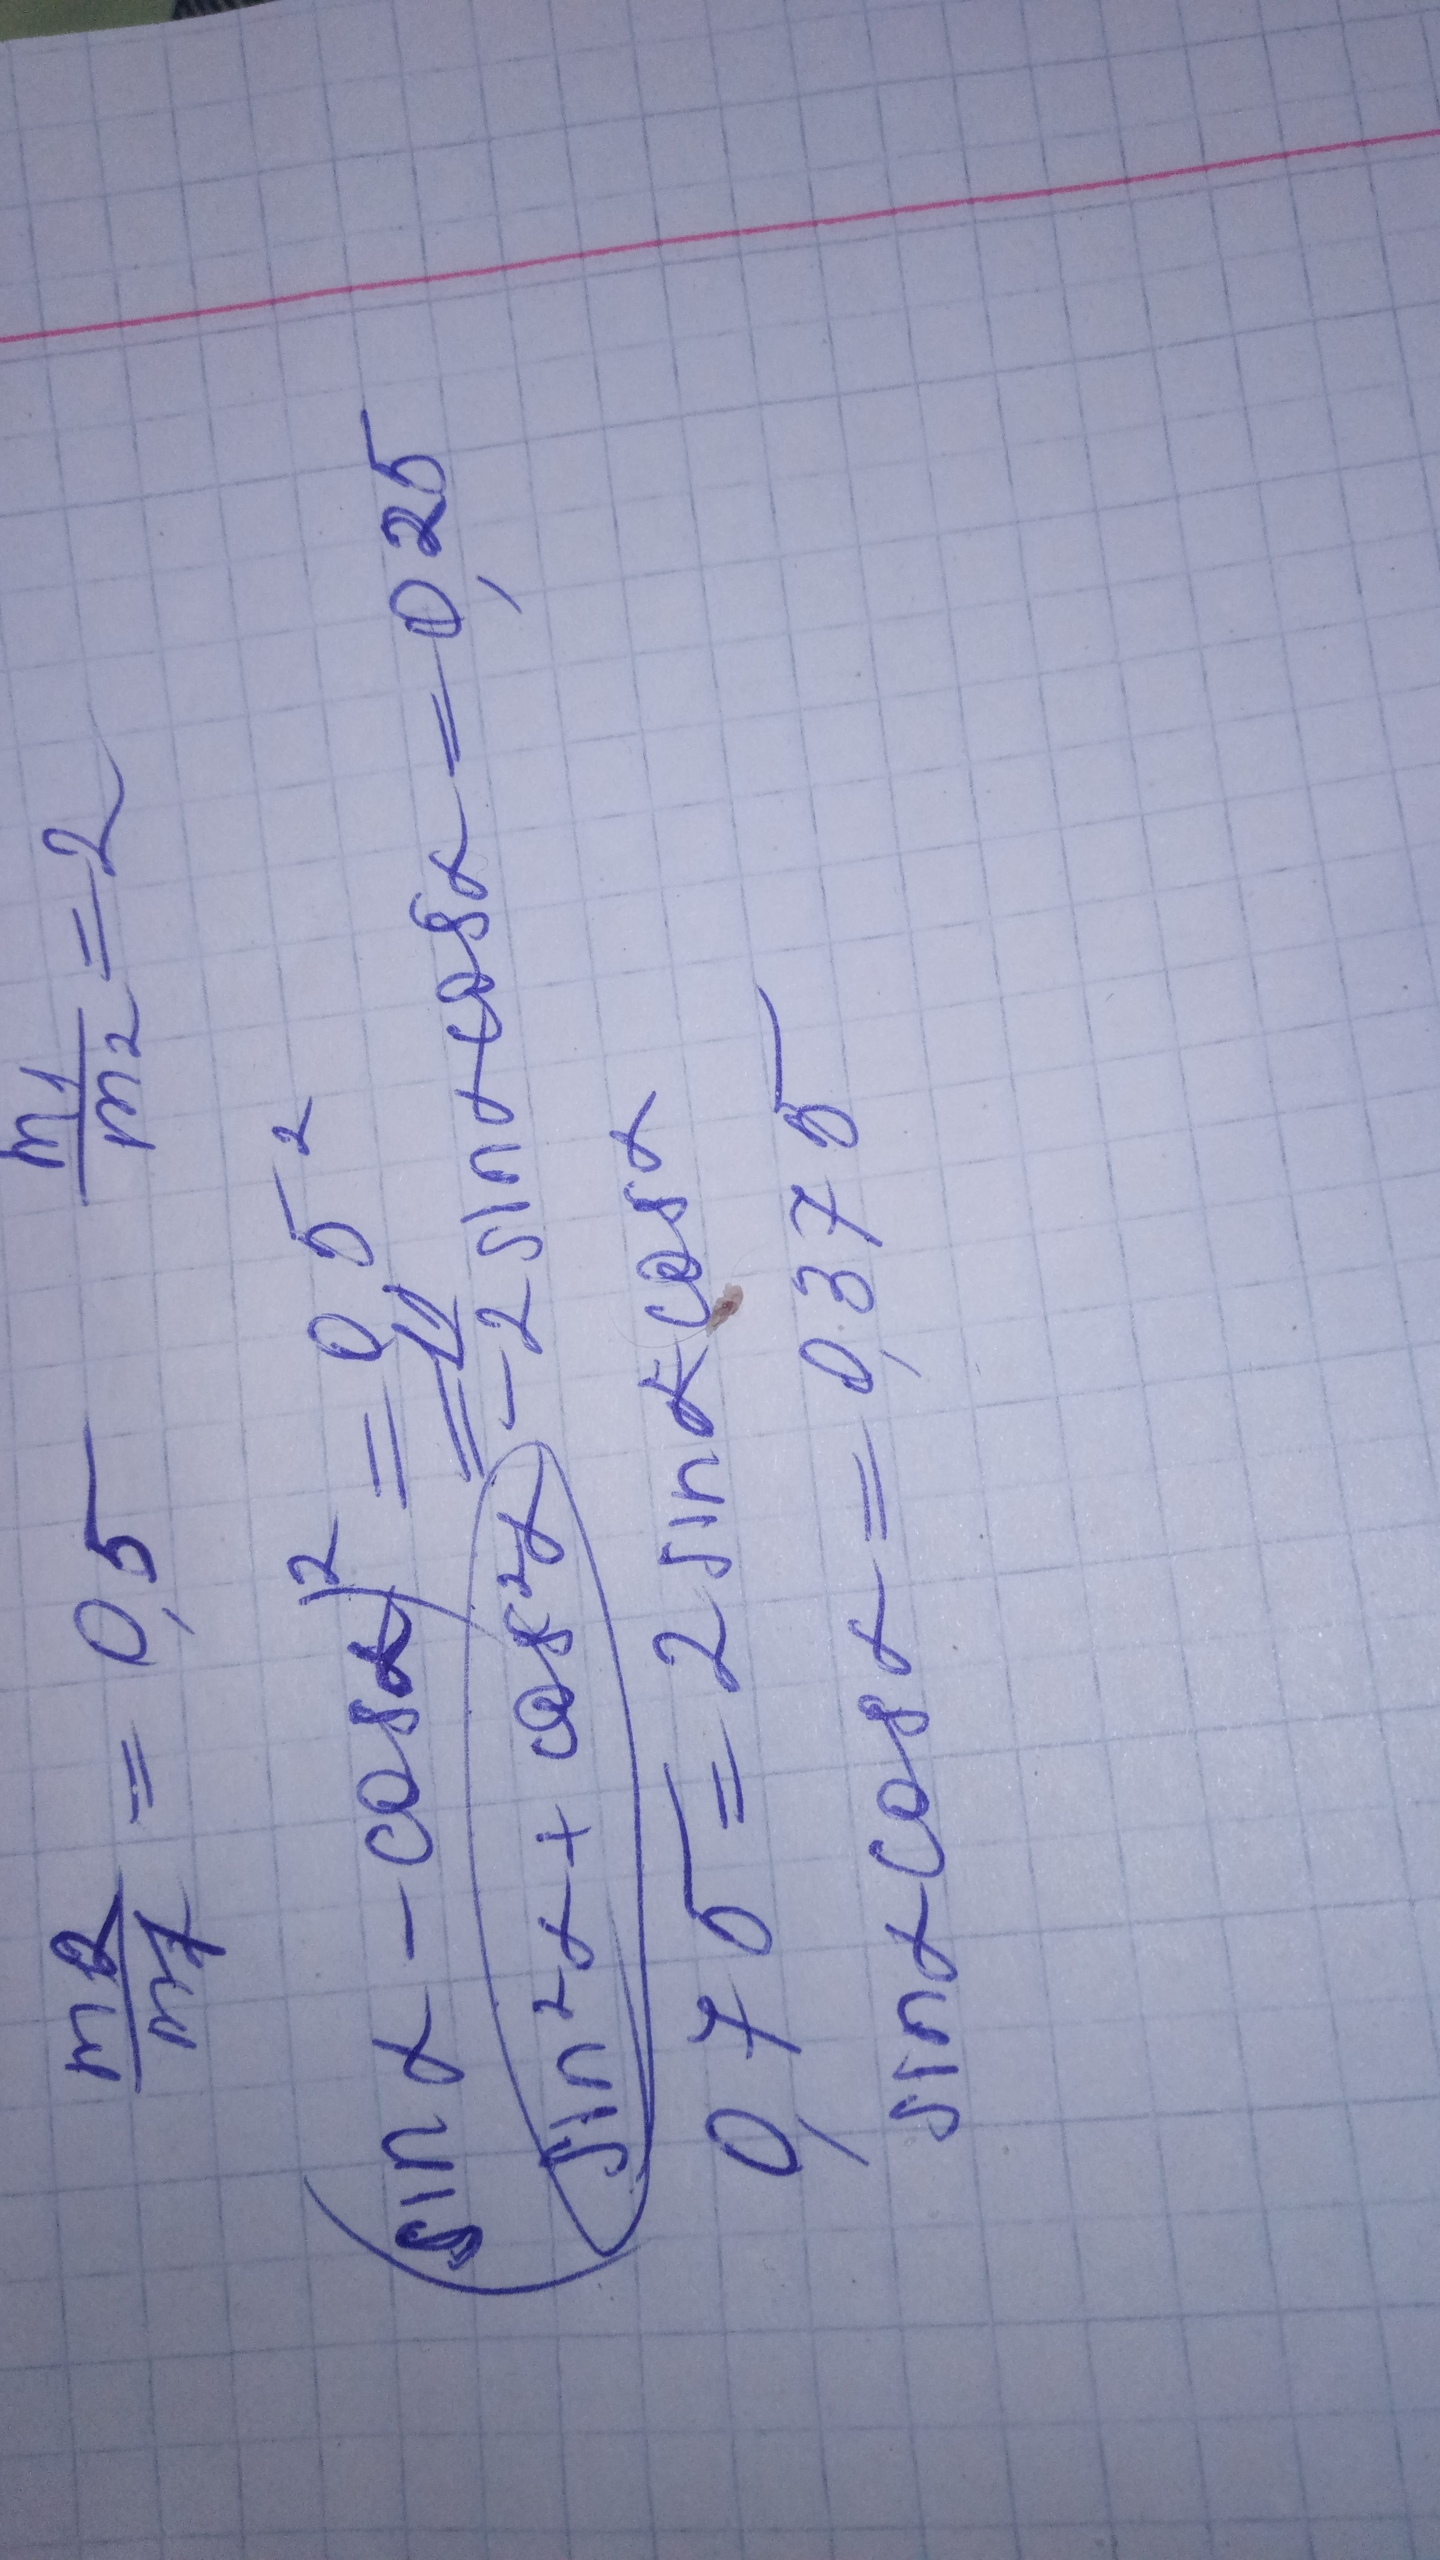 m2/m1 = 0,5 m1/m2 = 2
(sin α - cos α)² = 0,5²
= 1
sin²α + cos²α - 2 sin α cos α = 0,25
0,75 = 2 sin α cos α
sin α cos α = 0,375